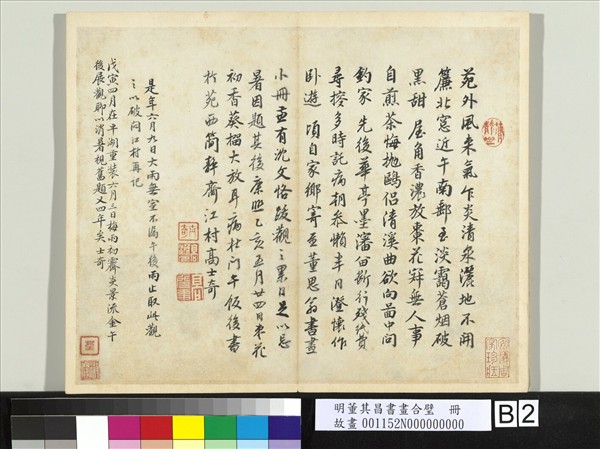 苑外風來氣乍炎清泉灑地不開
簾北窓近午南郵至淡靄蒼烟破
黑甜 屋角香濃放棗花 無人事
自煎茶悔拋鷗侶清溪曲欲向畵中問
釣家 先後華亭墨瀋 斷行殘紙費
尋搜多時託病朝參懶半日澄懷作
卧遊 頃自家鄉寄至董思翁書畫
小冊並有沈文恪跋觀之累日足以忘
暑因題其後康熙乙亥五月廿四日棗花
初香葵榴大放耳病杜門午飯後書
於苑西簡靜齋江村高士奇
是年六月九日大雨無室不漏午後雨止取此觀
之以破悶江村再記
戊寅四月在平湖重裝六月三日梅雨初霽炎景流金午
後展觀聊以消暑視舊題又四年矣士奇
明董其昌書畫合璧 冊
故畫 001152N000000000
B 2